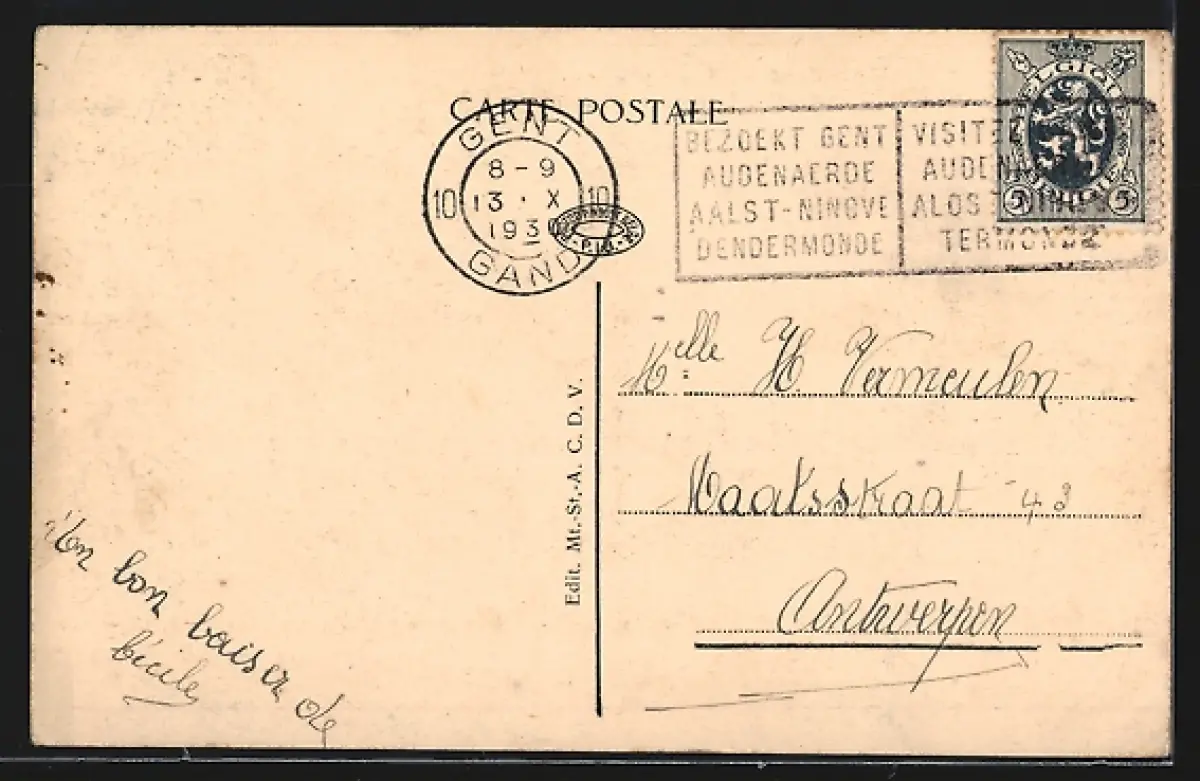 CARTE POSTALE
GENT
8-9
10 13 · X 10
193
GAND
BEZOEKT GENT
AUDENAERDE
AALST-NINOVE
DENDERMONDE
VISITEZ
AUDEN
ALOST
TERMONDE
BELGIQUE
BELGIE
5 5
P.I.B.
Melle H Vermeulen
Waatsstraat 43
Antwerpen
Edit. Mt.-St.-A. C. D. V.
Un bon baiser de
Cécile